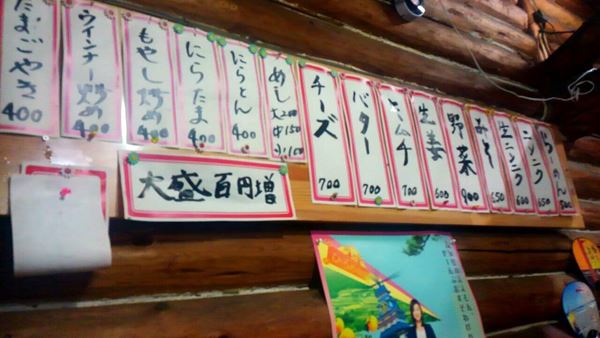 らーめん 500
ニンニク 650
生ニンニク 600
みそ 650
野菜 900
生姜 600
キムチ 700
バター 700
チーズ 700
めし 大200
中150
小100
にらとん 400
にらたま 400
もやし炒め 400
ウインナー炒め 400
たまごやき 400
大盛百円増